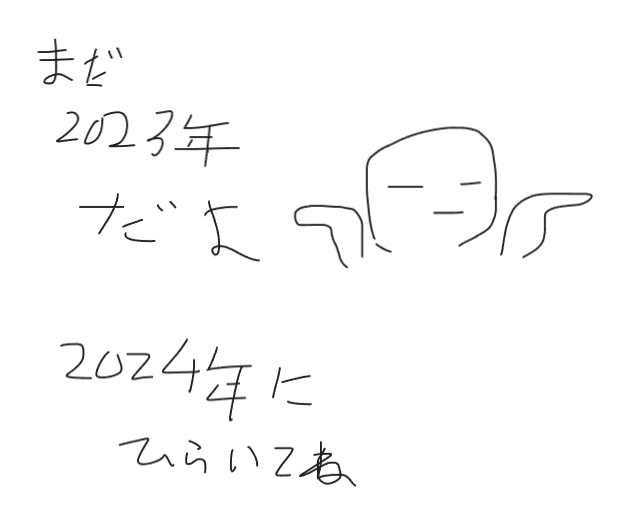 まだ
2023年
だよ
2024年に
ひらいてね